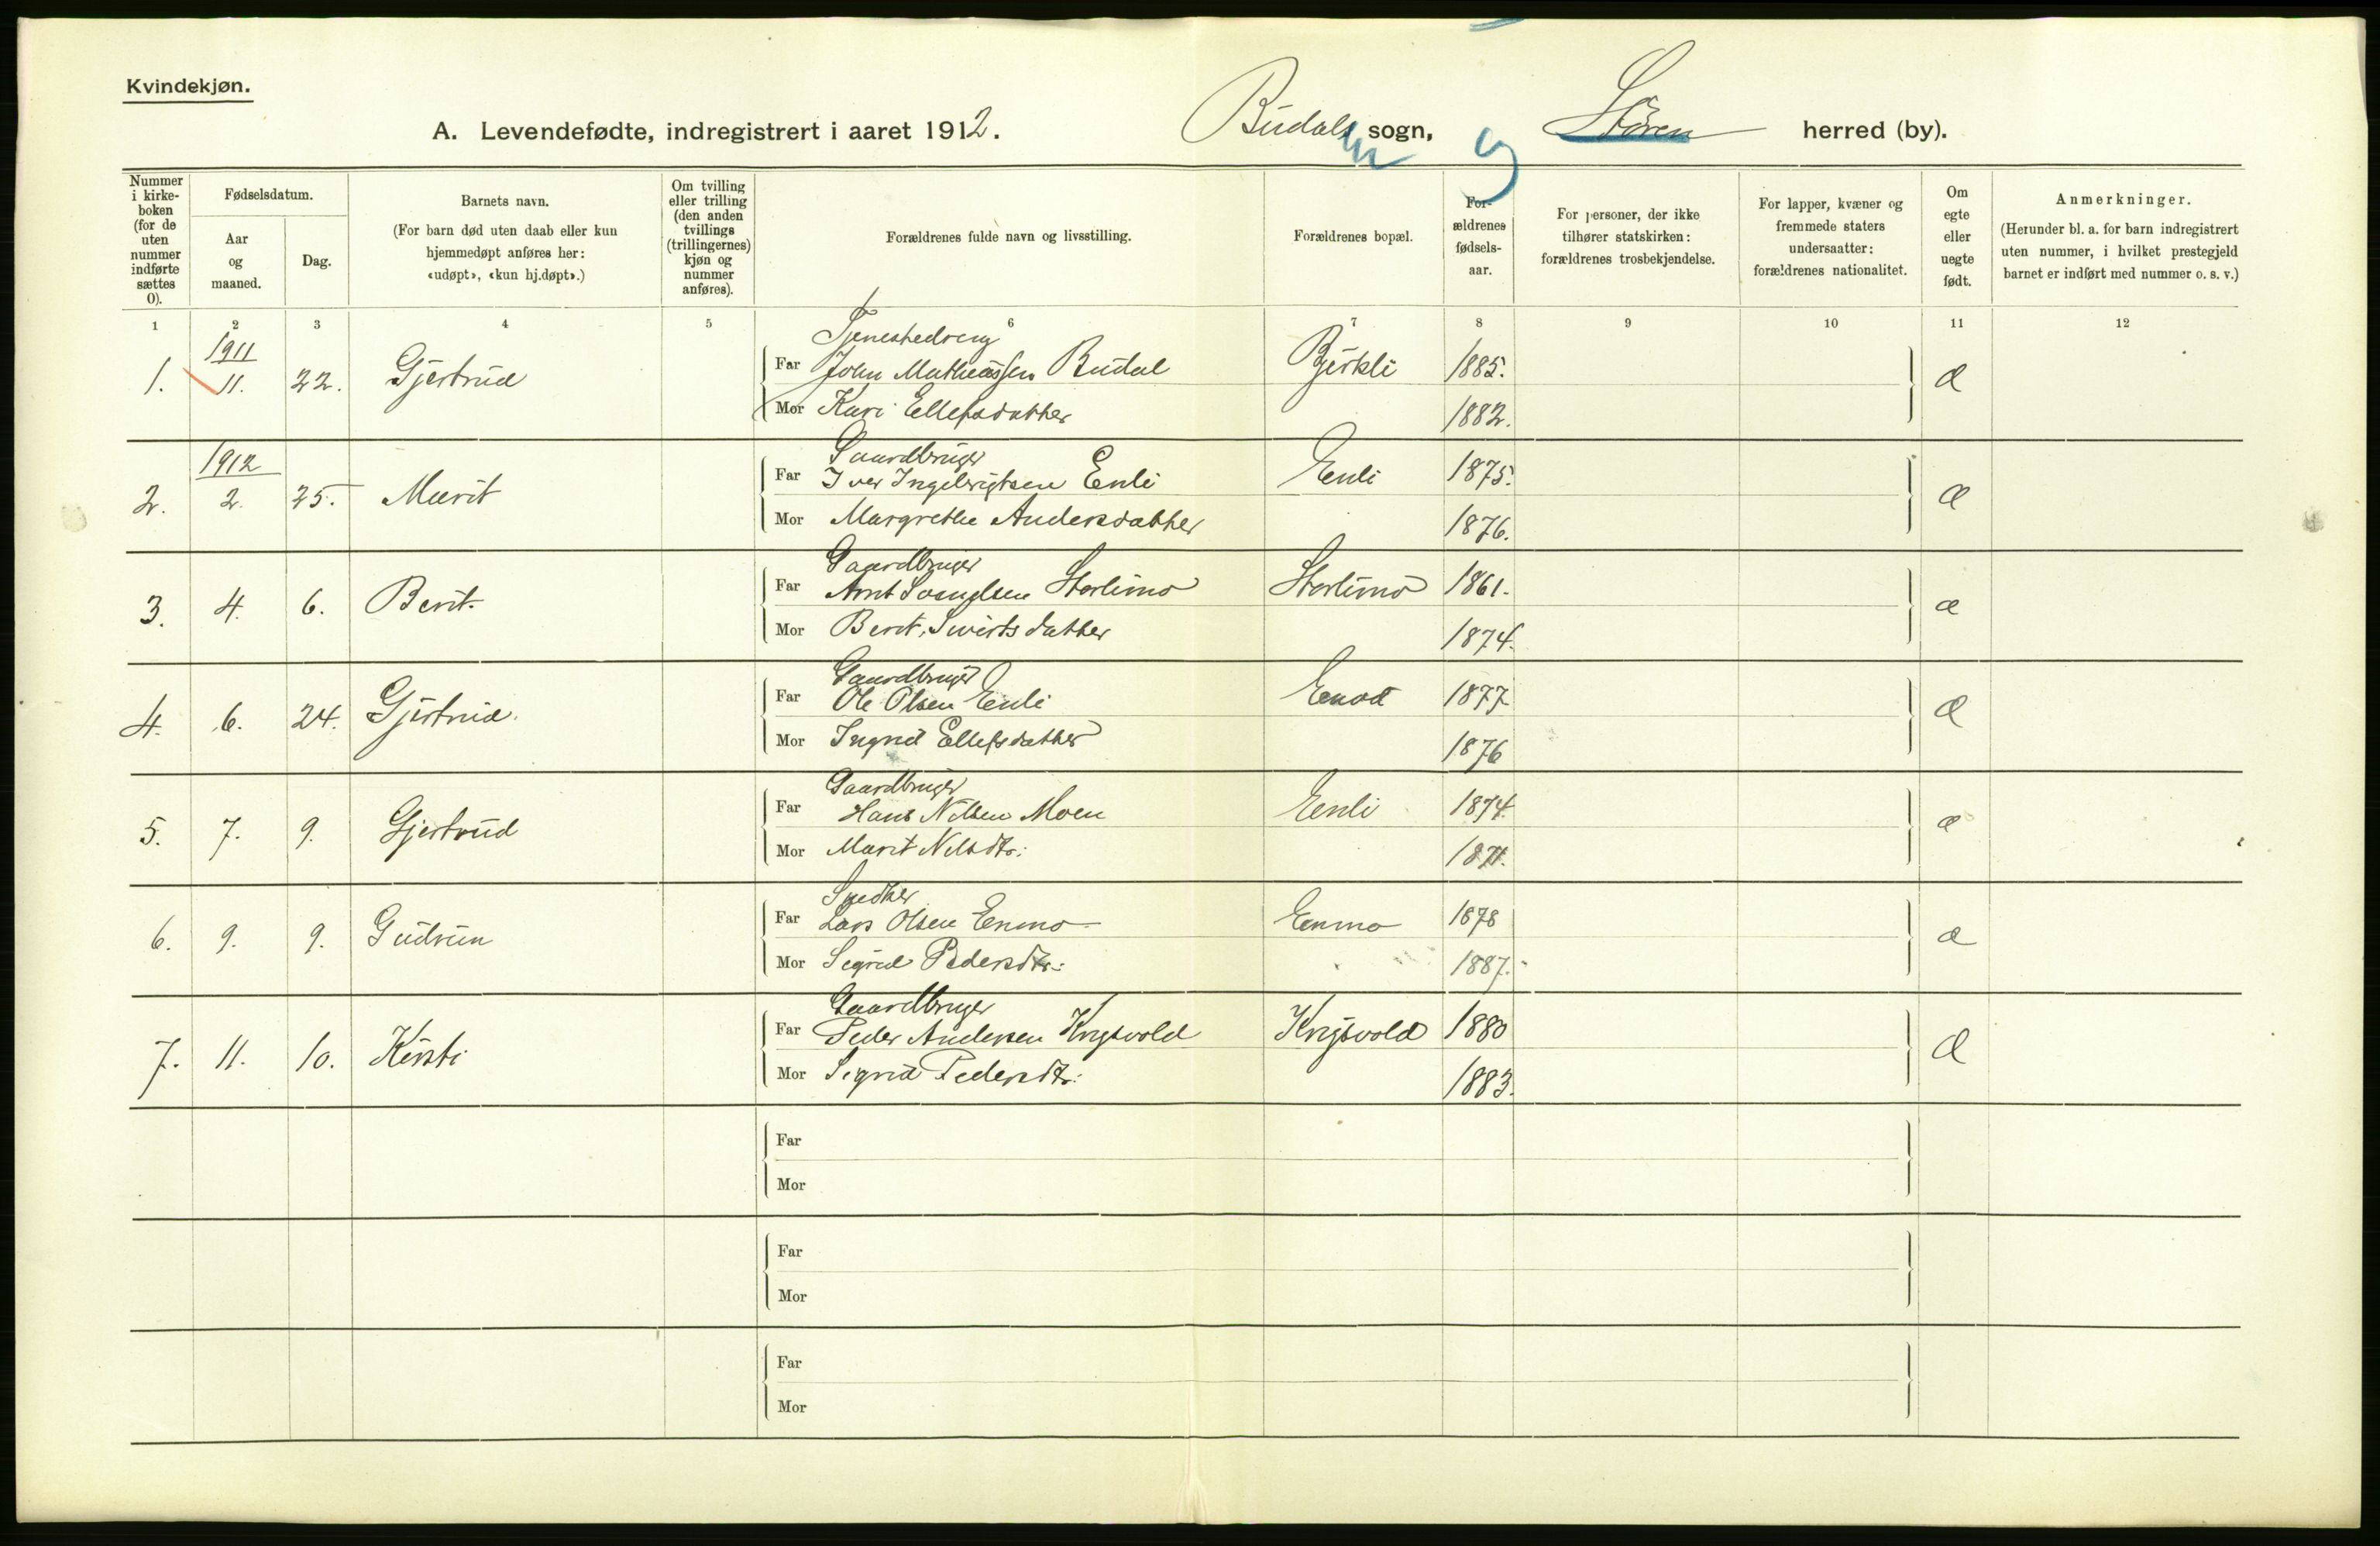 Kvindekjøn.
A. Levendefødte, indregistrert i aaret 1912. Budals sogn, og Støren herred (by).
Nummer i kirke-boken (for de uten nummer indførte sættes 0).
Fødselsdatum.
Aar og maaned.
Dag.
Barnets navn.
(For barn død uten daab eller kun hjemmedøpt anføres her: «udøpt», «kun hj.døpt».)
Om tvilling eller trilling (den anden tvillings (trillingernes) kjøn og nummer anføres).
Forældrenes fulde navn og livsstilling.
Forældrenes bopæl.
For-ældrenes fødsels-aar.
For personer, der ikke tilhører statskirken: forældrenes trosbekjendelse.
For lapper, kvæner og fremmede staters undersaatter: forældrenes nationalitet.
Om egte eller uegte født.
Anmerkninger.
(Herunder bl. a. for barn indregistrert uten nummer, i hvilket prestegjeld barnet er indført med nummer o. s. v.)
1 2 3 4 5 6 7 8 9 10 11 12
1911 Tjenestedreng
1. 11. 22. Gjertrud Far John Mathiassen Budal Bjerkli 1885. æ
Mor Kari Ellefsdatter 1882.
1912 Gaardbruger
2. 2. 25. Marit Far Iver Ingebrigtsen Enli Enli 1875. æ
Mor Margrethe Andersdatter 1876.
Gaardbruger
3. 4. 6. Berit Far Arnt Storlimo Storlimo 1861. æ
Mor Berit Sivertsdatter 1874.
Gaardbruger
4. 6. 24. Gjertrud Far Ole Olsen Enli Enod 1877 æ
Mor Ingrid Ellefsdatter 1876
Gaardbruger
5. 7. 9. Gjertrud Far Hans Nilsen Moen Enli 1874. æ
Mor Marit Nilsdtr.
Snedker
6. 9. 9. Gudrun Far Lars Olsen Enmo Enmo 1878 æ
Mor Sigrid Pedersdtr: 1887.
Gaardbruger
7. 11. 10. Kirsti Far Peder Andersen Krigsvold Krigsvold 1880 æ
Mor Sigrid Pedersdtr: 1883.
Far
Mor
Far
Mor
Far
Mor